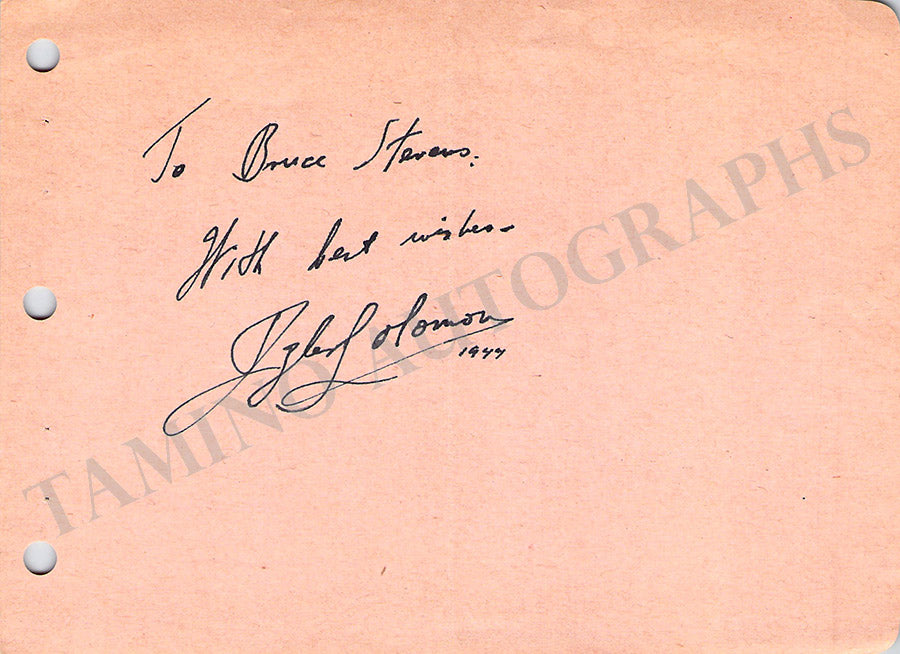 To Bruce Stevens.
With best wishes-
Izler Solomon
1944
TAMINO AUTOGRAPHS